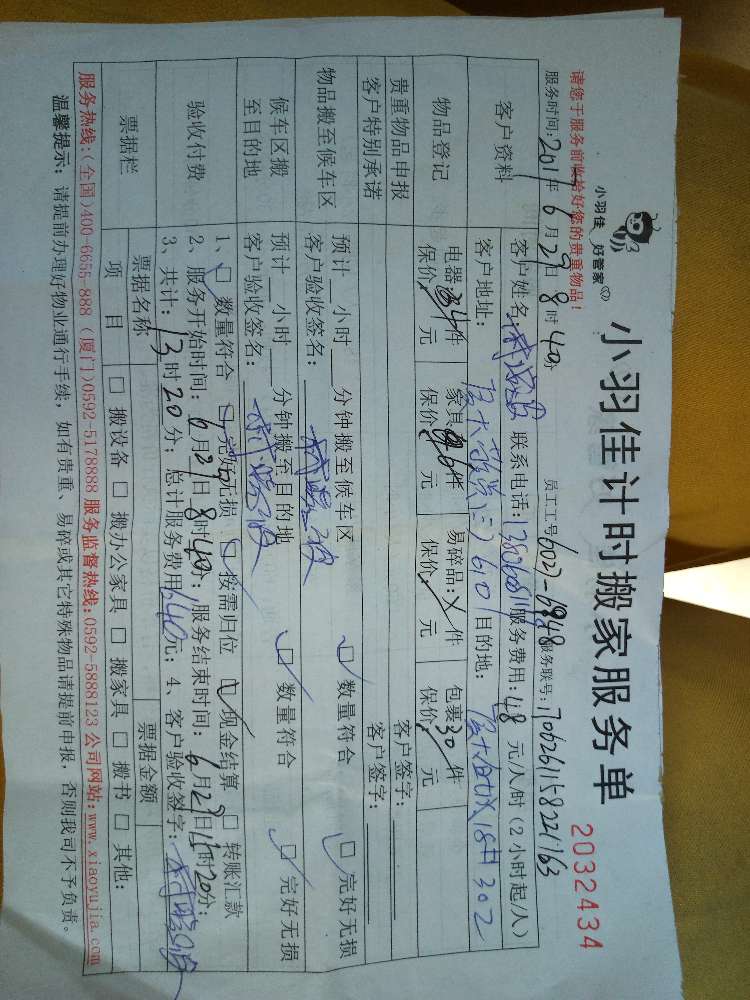 小羽佳 好管家
小羽佳计时搬家服务单
2032434
请您于服务前收拾好您的贵重物品！
服务时间：201 年 6 月 29 日 8 时 40 分 员工工号： 服务联号：
客户资料
客户姓名： 联系电话： 服务费用：48 元/人时（2小时起/人）
客户地址： 601 目的地： 302
物品登记
电器： 4 件 家具 6 件 易碎品： 件 包裹 30 件
保价 元 保价 元 保价 元 保价 元
贵重物品申报 客户签字：
客户特别承诺 客户签字：
物品搬至候车区
预计 小时 分钟搬至候车区
客户验收签名： □ 数量符合 □ 完好无损
候车区搬至目的地
预计 小时 分钟搬至目的地
客户验收签名： □ 数量符合 □ 完好无损
验收付费
1、□ 数量符合 □ 完好无损 □ 按需归位 □ 现金结算 □ 转账汇款
2、服务开始时间：6 月 29 日 8 时 40 分；服务结束时间：6 月 29 日 15 时 20 分；
3、共计：13 时 20 分；总计服务费用 640 元；4、客户验收签字：
票据栏
票据名称 票据金额
项目 □ 搬设备 □ 搬办公家具 □ 搬家具 □ 搬书 □ 其他：
服务热线：（全国）400-6655-888 （厦门）0592-5178888 服务监督热线：0592-5888123 公司网站：www.xiaoyujia.com
温馨提示：请提前办理好物业通行手续，如有贵重、易碎或其它特殊物品请提前申报，否则我司不予负责。